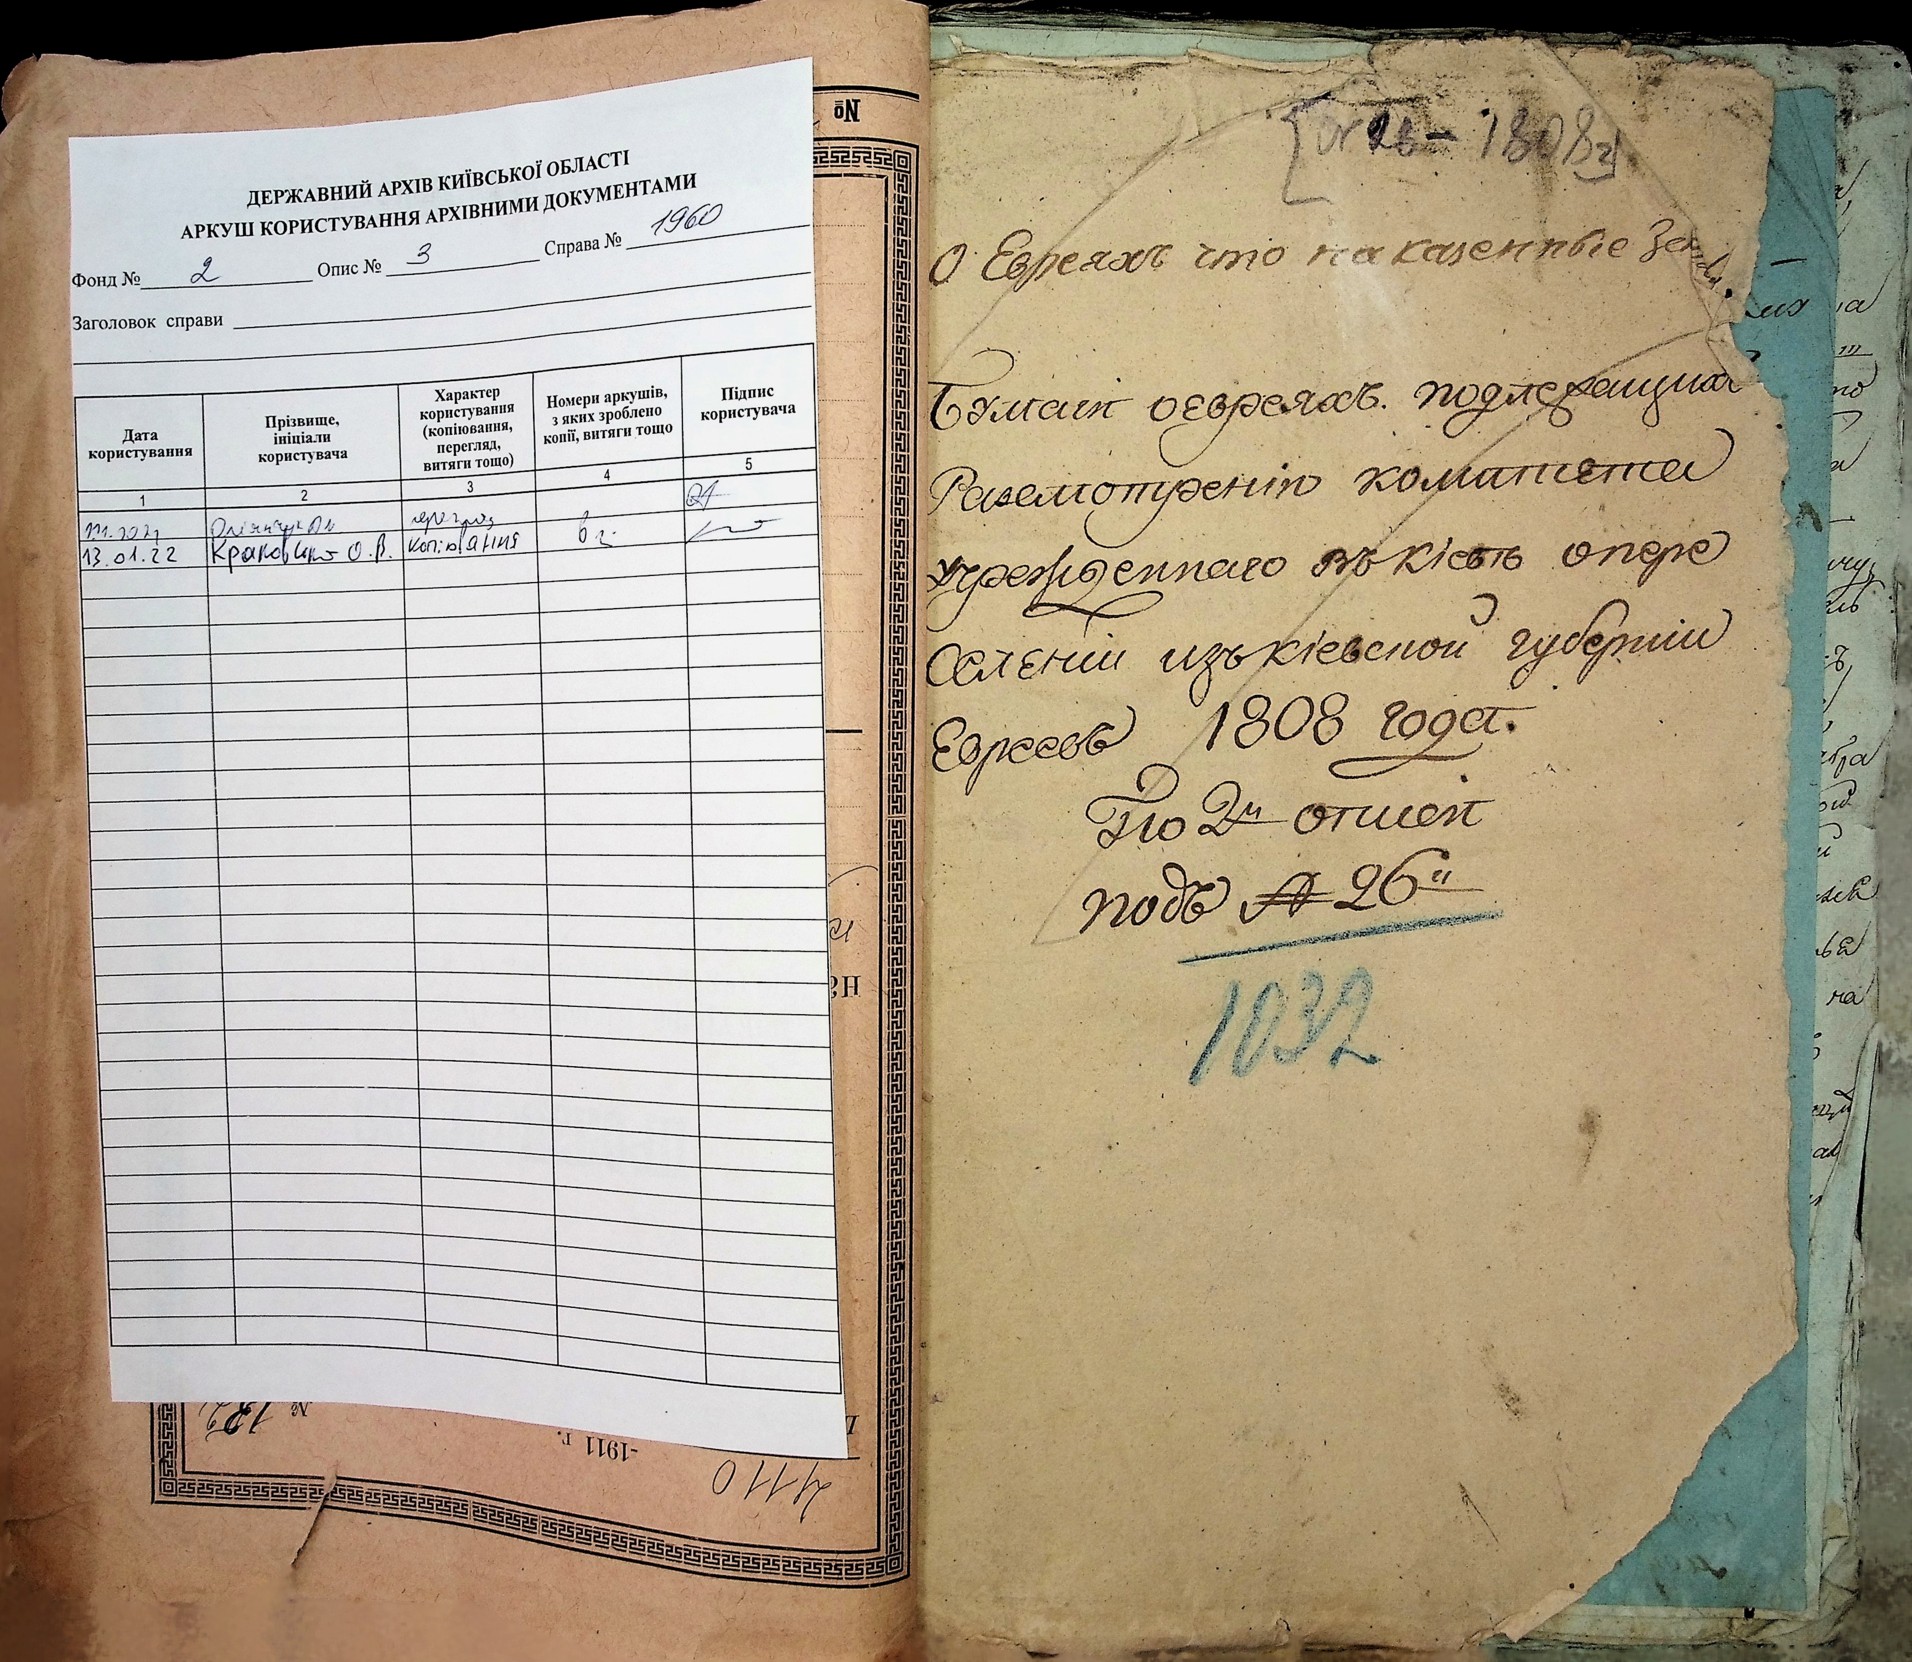 ДЕРЖАВНИЙ АРХІВ КИЇВСЬКОЇ ОБЛАСТІ
АРКУШ КОРИСТУВАННЯ АРХІВНИМИ ДОКУМЕНТАМИ
Фонд № 2 Опис № 3 Справа № 1960
Заголовок справи
Дата користування
Прізвище, ініціали користувача
Характер користування (копіювання, перегляд, витяги тощо)
Номери аркушів, з яких зроблено копії, витяги тощо
Підпис користувача
1 2 3 4 5
13.01.22 О.В. копіювання
№
На
№ 132
-1911 г.
4110
1808 г
О Евреяхъ что на казенные
Бумаги о евреяхъ. подлежащих
Разсмотрению комитета
учрежденнаго въ Кіевѣ о пере
селеніи изъ кіевской губерніи
Евреевъ 1808 года.
По 2й описи
подъ № 26
1032